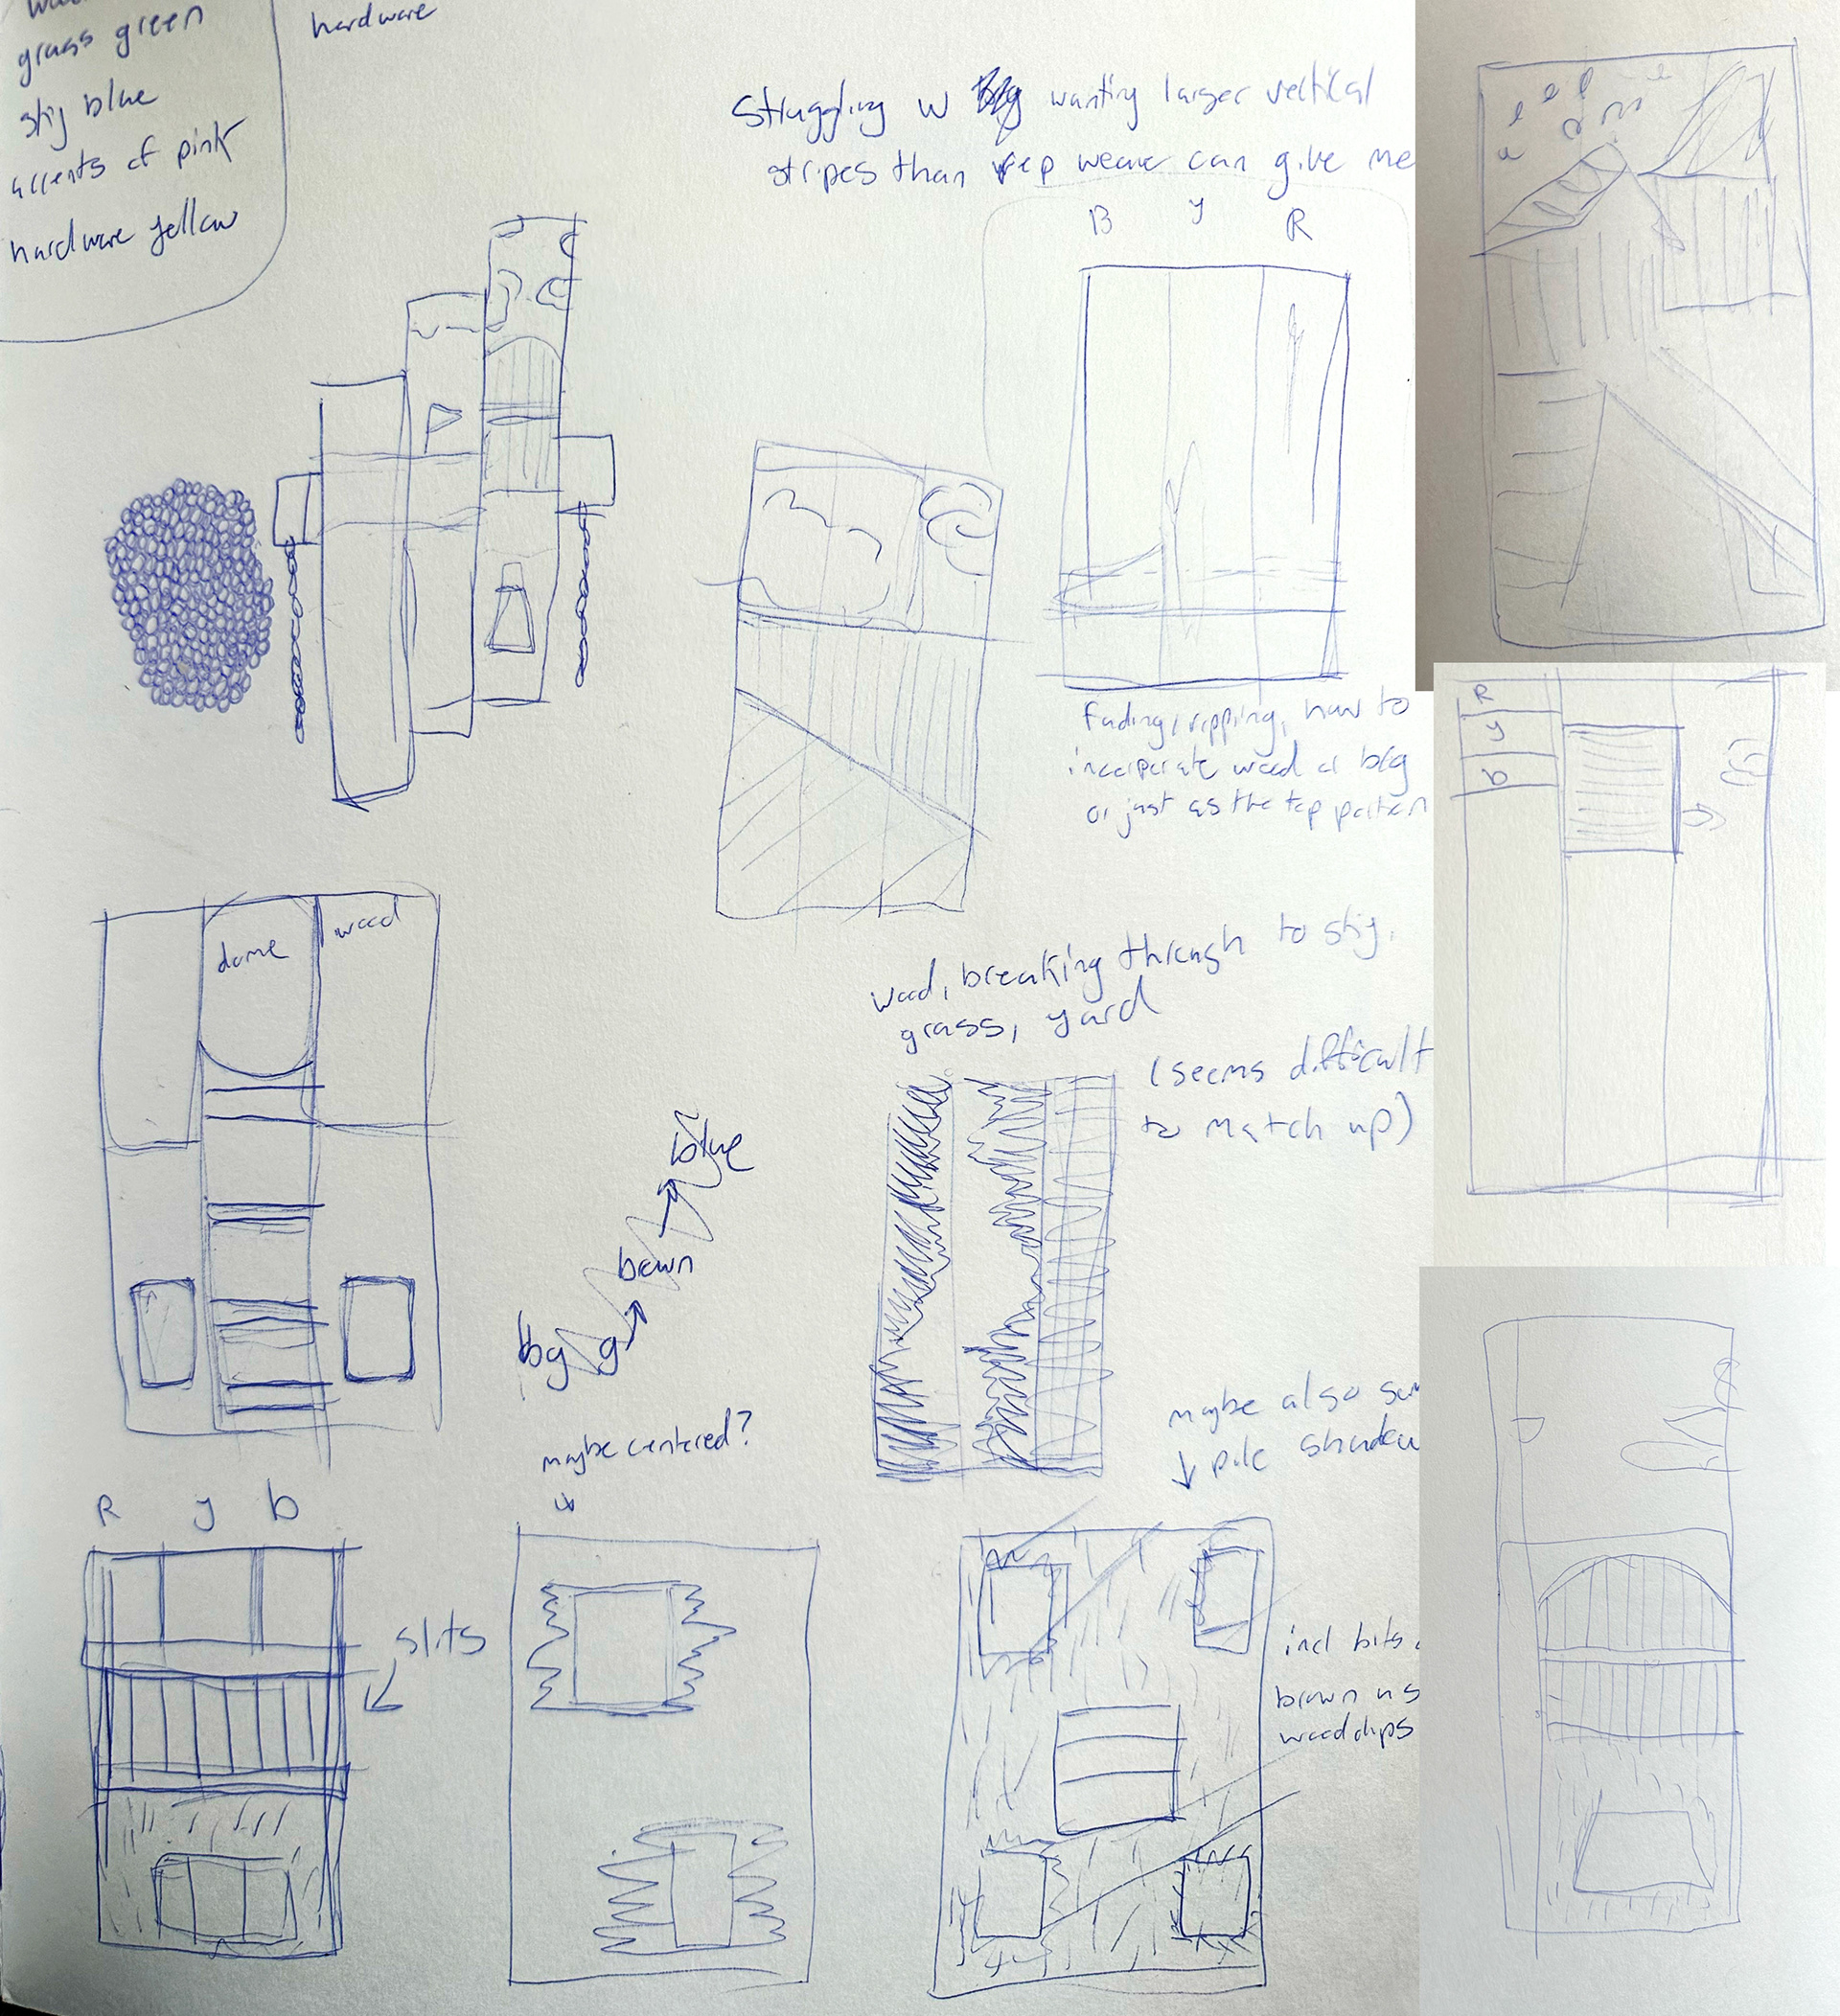 grass green
sky blue
accents of pink
hardware yellow
hardware
Struggling w bkg wanting larger vertical
stripes than rep weave can give me
B y R
fading, ripping, how to
incorporate wood as bkg
or just as the top portion
R
y
b
dome
wood
wood, breaking through to sky,
grass, yard
(seems difficult
to match up)
blue
brown
bg g
maybe centered?
maybe also
pole shadow
R y b
slits
incl bits
brown as
woodchips